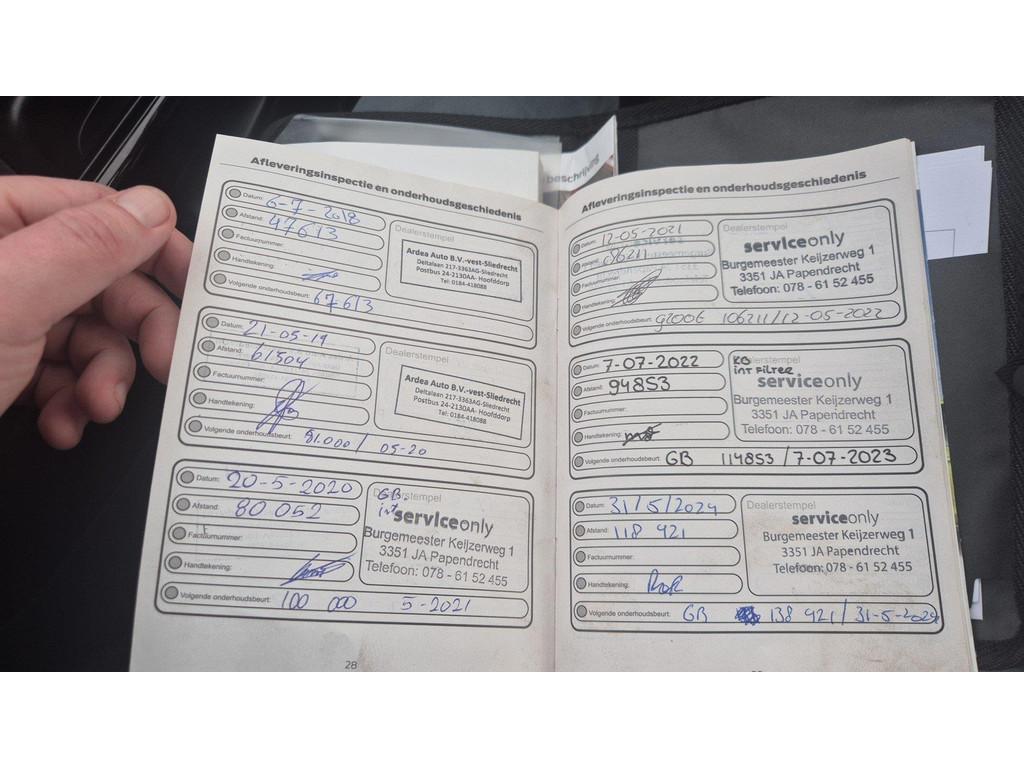 beschrijving
Afleveringsinspectie en onderhoudsgeschiedenis
Datum: 6-7-2018
Afstand: 47613
Factuurnummer:
Handtekening:
Volgende onderhoudsbeurt: 67613
Dealerstempel
Ardea Auto B.V.-vest-Sliedrecht
Deltalaan 217-3363AG-Sliedrecht
Postbus 24-2130AA- Hoofddorp
Tel: 0184-418088
Datum: 21-05-19
Afstand: 61504
Factuurnummer:
Handtekening:
Volgende onderhoudsbeurt: 91.000 / 05-20
Dealerstempel
Ardea Auto B.V.-vest-Sliedrecht
Deltalaan 217-3363AG-Sliedrecht
Postbus 24-2130AA- Hoofddorp
Tel: 0184-418088
Datum: 20-5-2020
Afstand: 80 052
Factuurnummer:
Handtekening:
Volgende onderhoudsbeurt: 100 000 5-2021
Dealerstempel
GB.
int
serviceonly
Burgemeester Keijzerweg 1
3351 JA Papendrecht
Telefoon: 078 - 61 52 455
28
Afleveringsinspectie en onderhoudsgeschiedenis
Datum: 12-05-2021
Afstand:
Factuurnummer:
Handtekening:
Volgende onderhoudsbeurt: 106211/12-05-2022
Dealerstempel
serviceonly
Burgemeester Keijzerweg 1
3351 JA Papendrecht
Telefoon: 078 - 61 52 455
Datum: 7-07-2022
Afstand: 94853
Factuurnummer:
Handtekening:
Volgende onderhoudsbeurt: GB 114853 / 7-07-2023
Dealerstempel
INT FILTER
serviceonly
Burgemeester Keijzerweg 1
3351 JA Papendrecht
Telefoon: 078 - 61 52 455
Datum: 31/5/2024
Afstand: 118 421
Factuurnummer:
Handtekening:
Volgende onderhoudsbeurt: GB 138 421 / 31-5-2024
Dealerstempel
serviceonly
Burgemeester Keijzerweg 1
3351 JA Papendrecht
Telefoon: 078 - 61 52 455